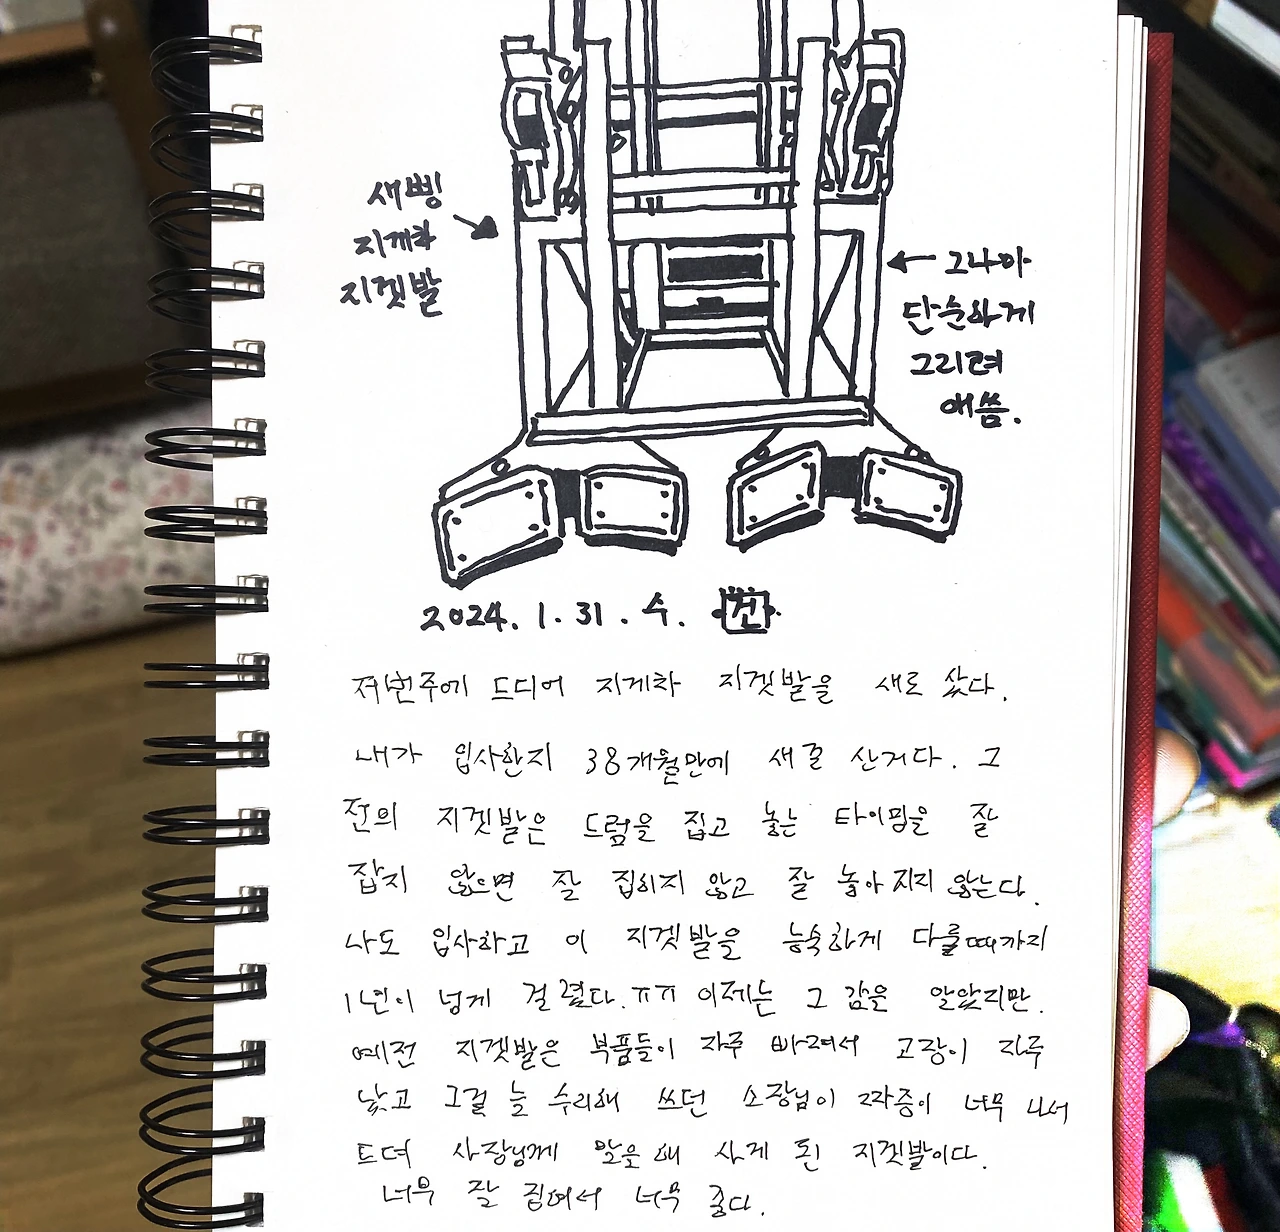 새삥
지게차
지겟발
그나마
단순하게
그리려
애씀.
2024. 1. 31. 수. 건
저번주에 드디어 지게차 지겟발을 새로 샀다.
내가 입사한지 38개월만에 새걸 산거다. 그
전의 지겟발은 드럼을 집고 놓는 타이밍을 잘
잡지 않으면 잘 집히지 않고 잘 놓아지지 않는다.
나도 입사하고 이 지겟발을 능숙하게 다룰때까지
1년이 넘게 걸렸다.ㅠㅠ 이제는 그 감을 알았지만.
예전 지겟발은 부품들이 자주 빠려서 고장이 자주
났고 그걸 늘 수리해 쓰던 소장님이 짜증이 너무 나서
드뎌 사장님께 말을해 사게 된 지겟발이다.
너무 잘 집여서 너무 좋다.